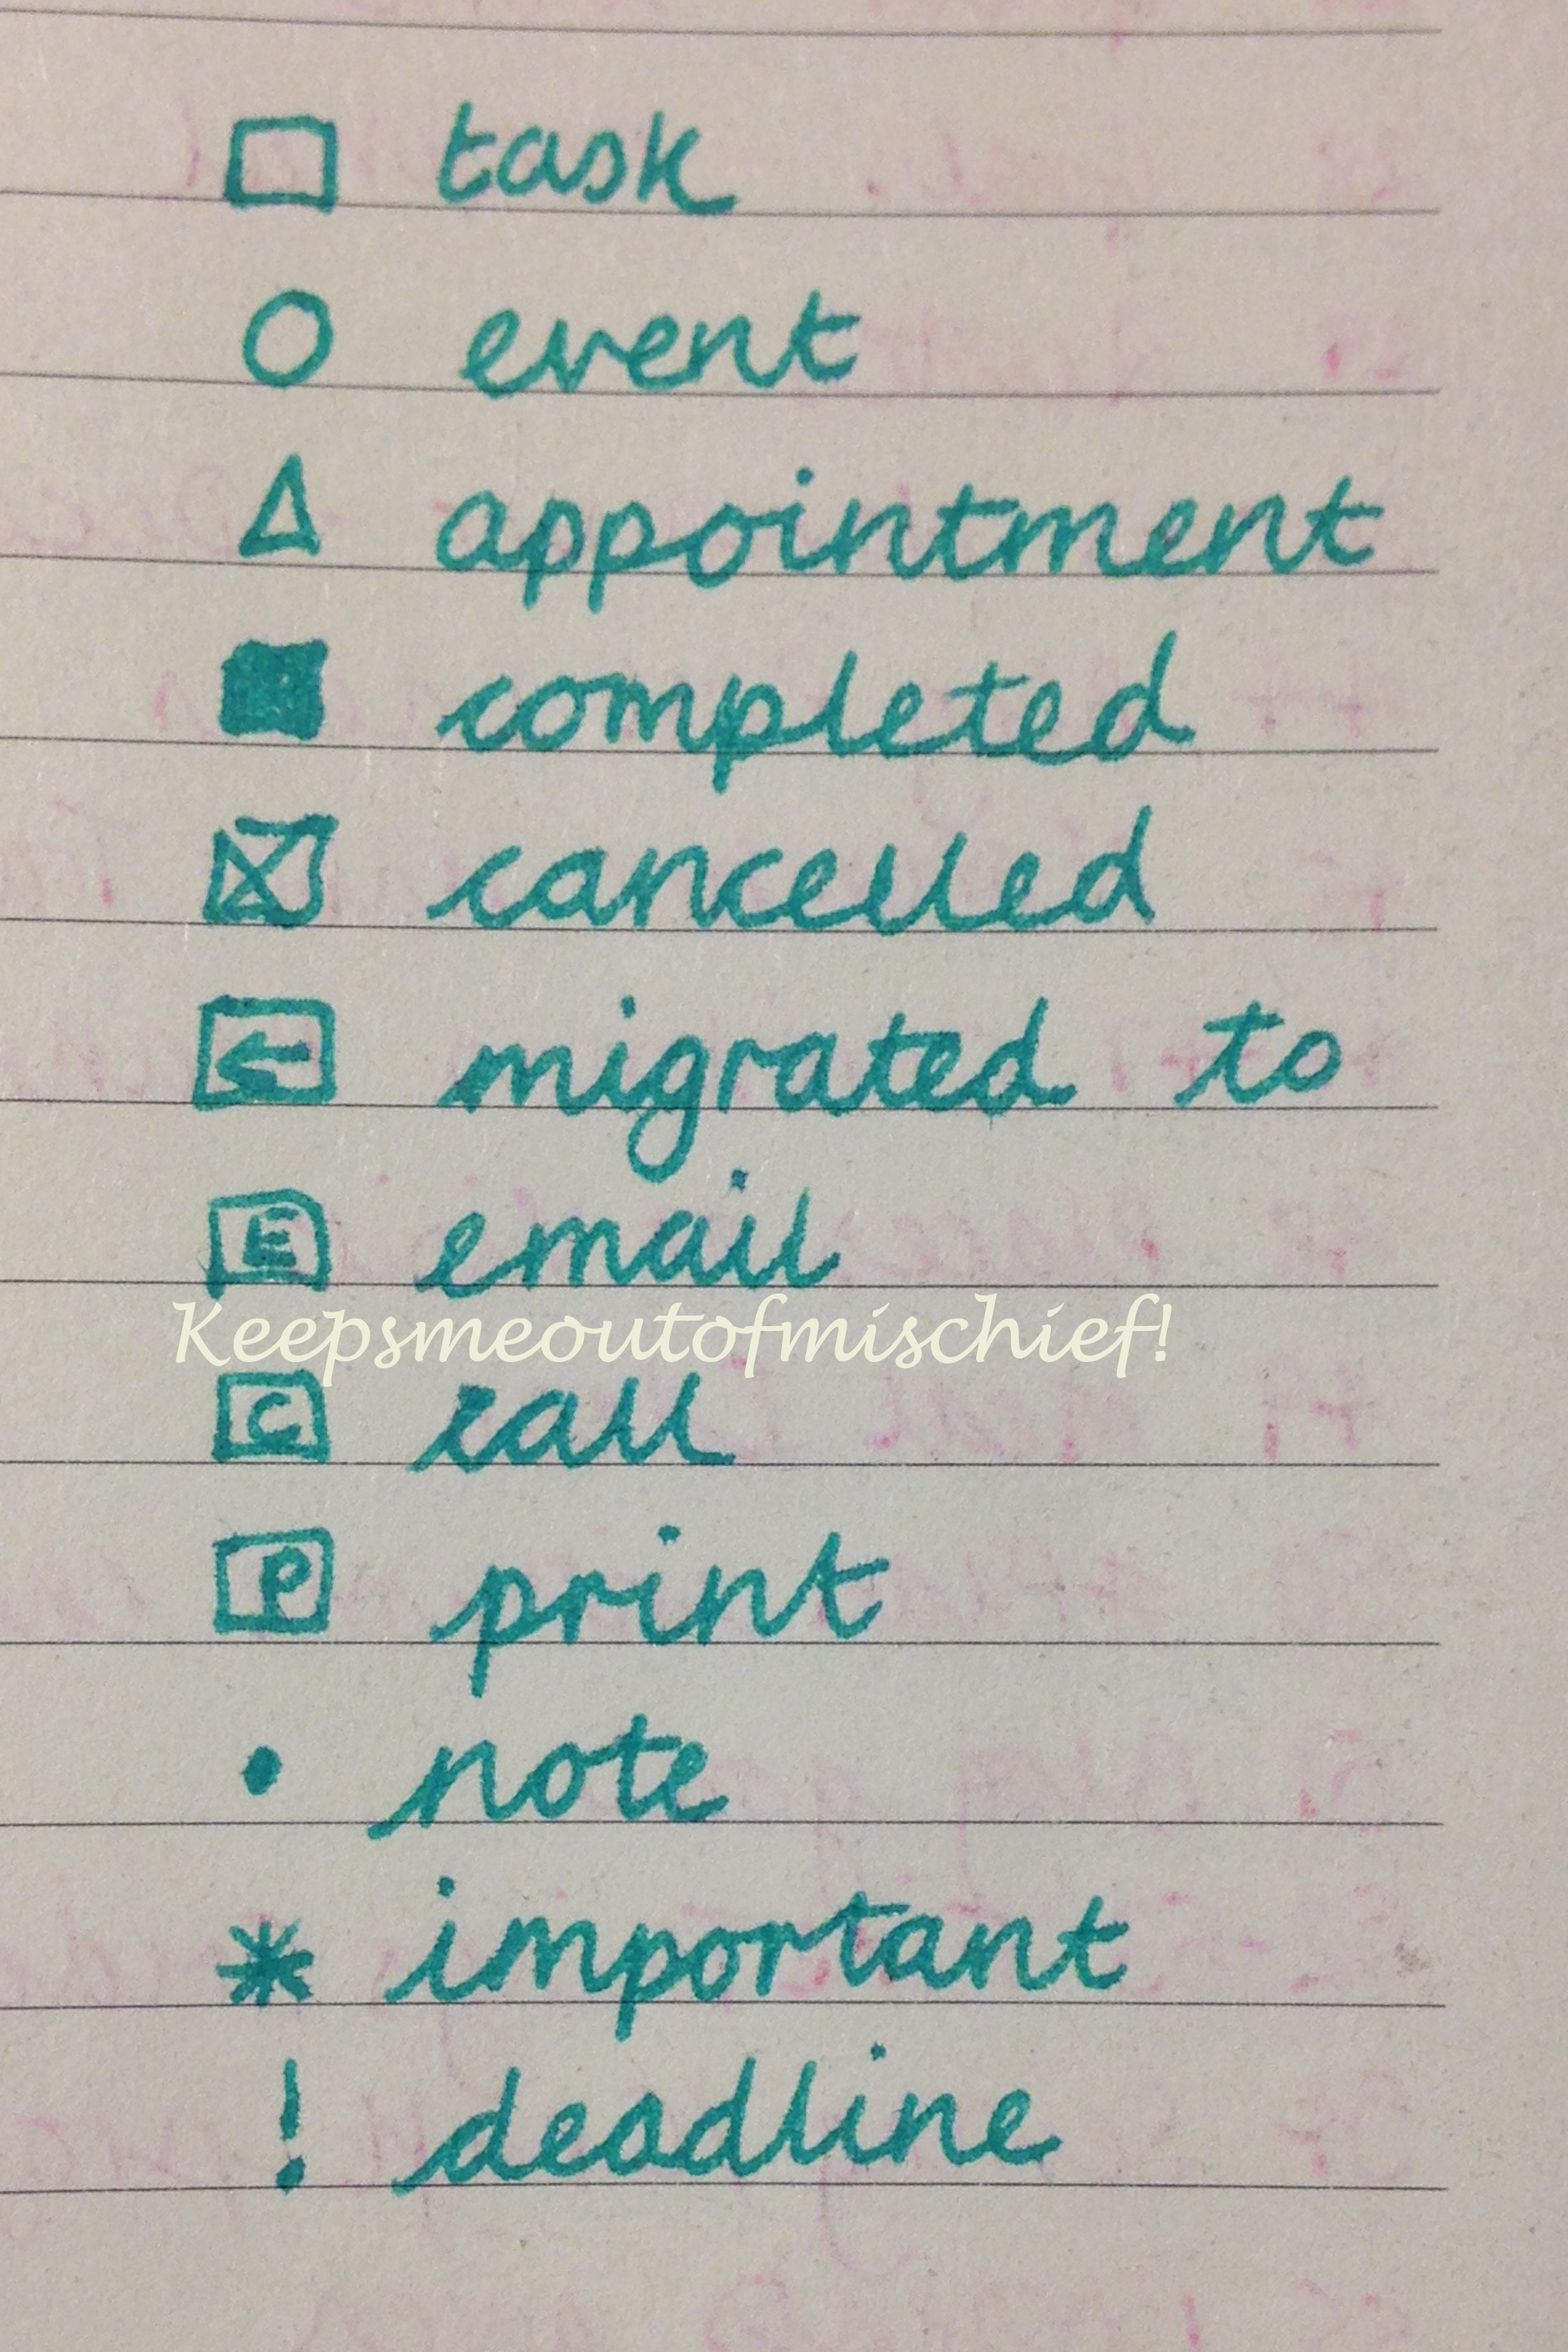 □ task
○ event
△ appointment
■ completed
☒ cancelled
← migrated to
E email
Keepsmeoutofmischief!
C call
P print
• note
* important
! deadline